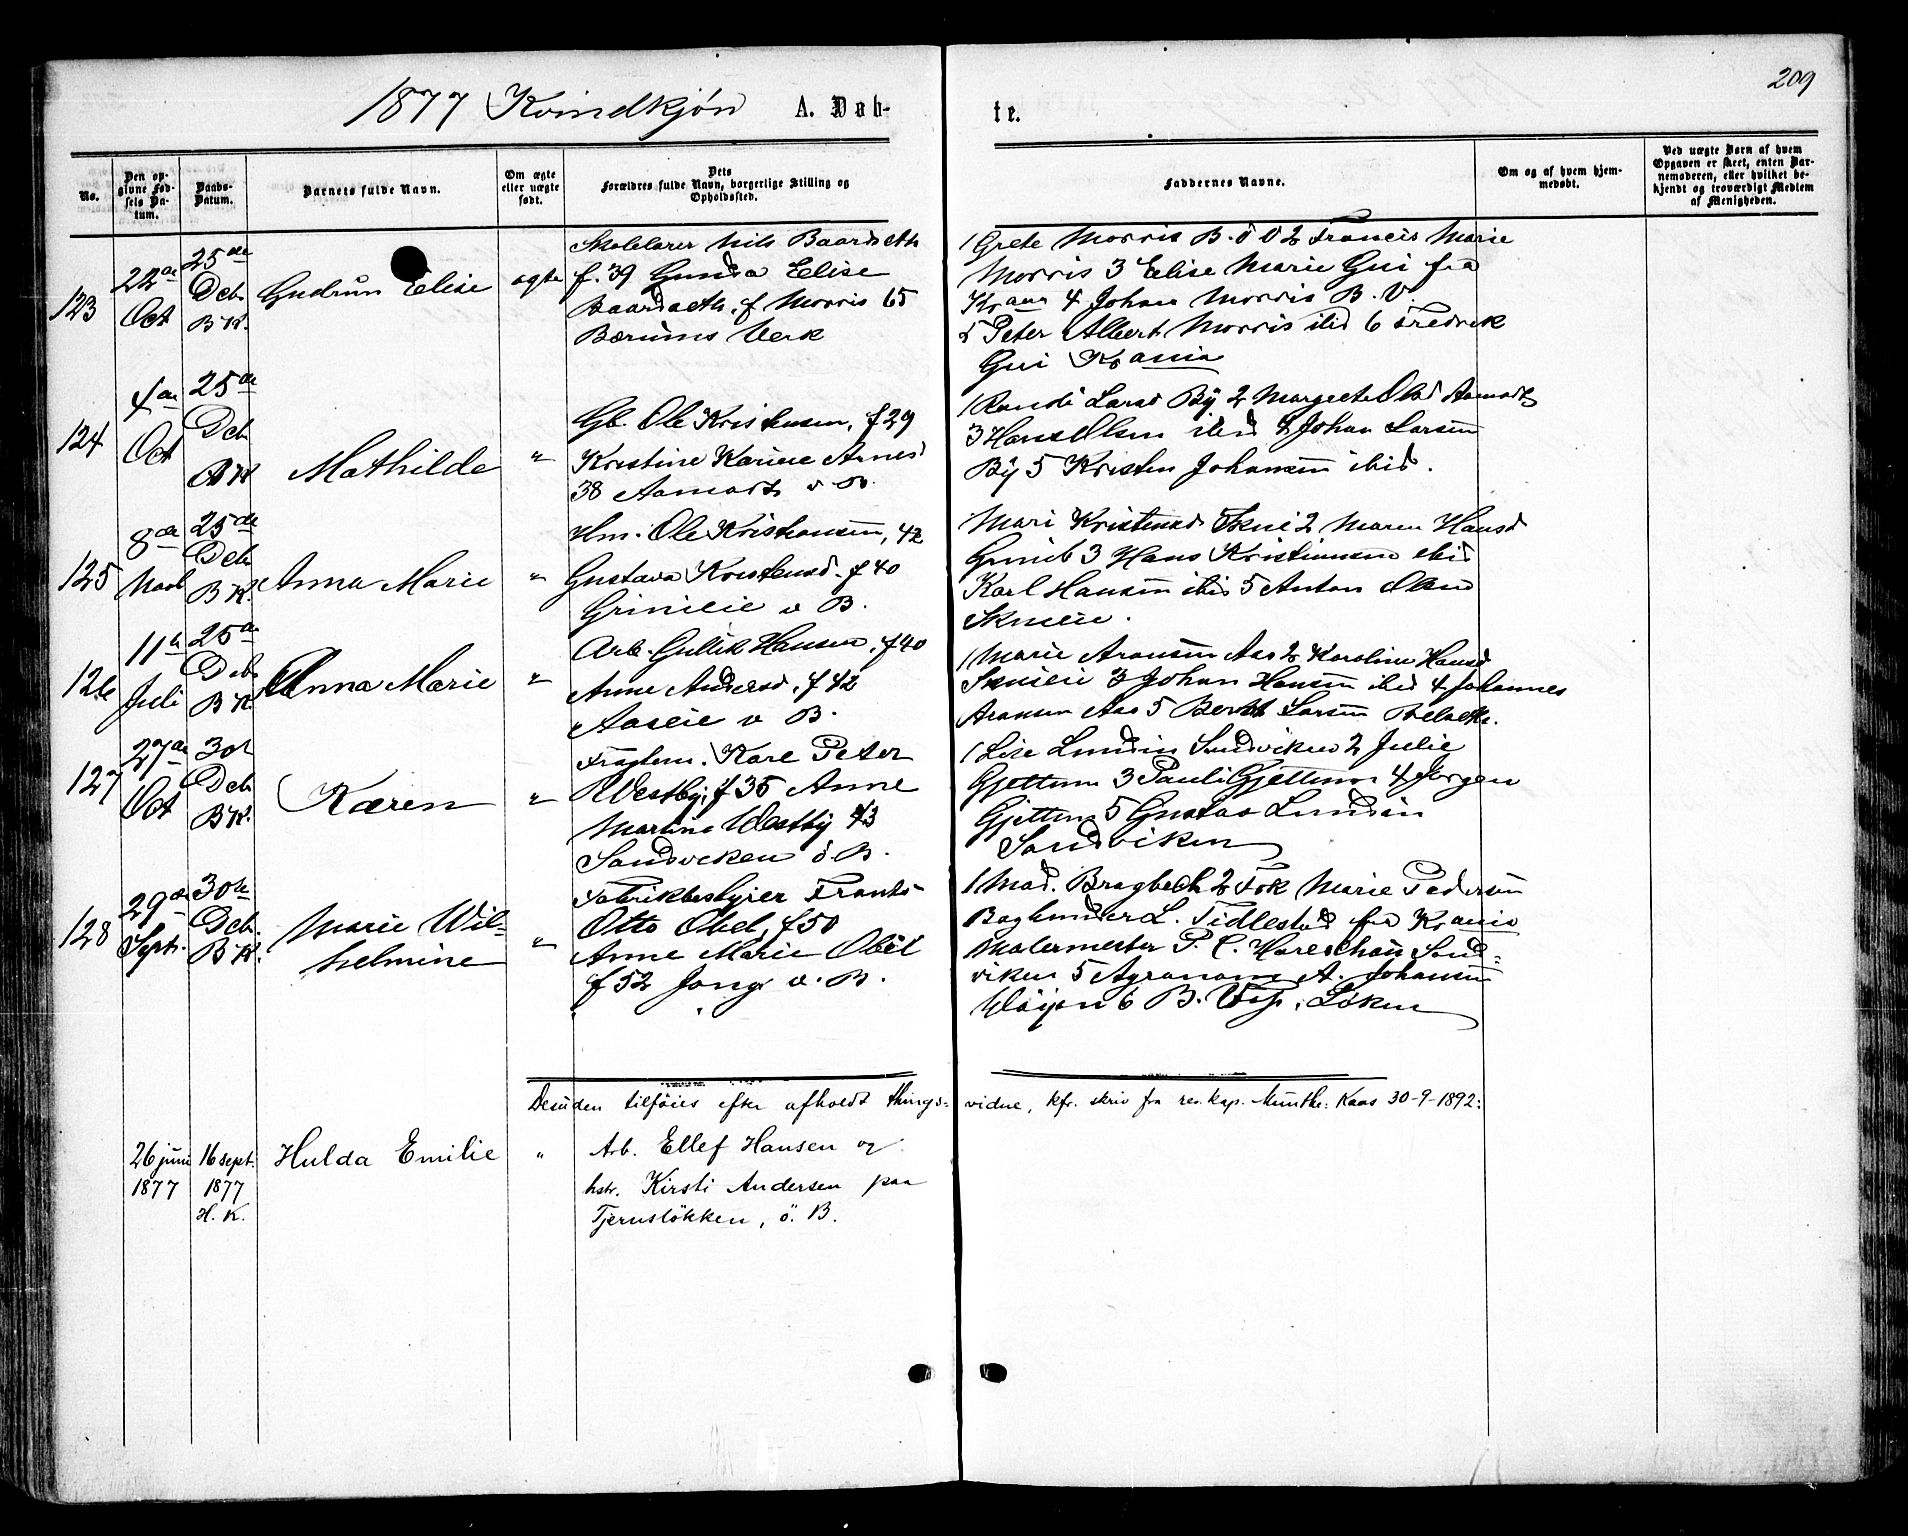 209
1877 Kvindkjón A. Døb-
te.
No.
Den op-
givne Fød-
sels Da-
tum.
Daabs-
Datum.
Barnets fulde Navn.
Om ægte
eller uægte
født.
Dets
Forældres fulde Navn, borgerlige Stilling og
Opholdssted.
Faddernes Navne.
Om og af hvem hjem-
medøbt.
Ved uægte Børn af hvem
Opgaven er skeet, enten Bar-
nemoderen, eller hvilket be-
kjendt og troværdigt Medlem
af Menigheden.
123
22de
Oct
25de
Deb
B K.
Gudrun Elise
ægte
Skolelærer Nils Baardseth
f. 39 Gunda Elise
Baardseth, f Morris 65
Bærums Verk
1 Grete Morris B. 2 Francis Marie
Morris 3 Elise Marie Gui fra
Kr ania 4 Johan Morris B. V.
5 Peter Albert Morris ibid 6 Fredrik
Gui Kr ania
124
4de
Oct
25de
Deb
Mathilde
"
Gb. Ole Kristensen, f 29
Kristine Karine Arnesd
38 Aamodt v B.
1 Randi Larsd By 2 Margrete Olsd Aamodt
3 Hans Olsen ibid 4 Johan Larsen
By 5 Kristen Johansen ibid.
125
8de
25de
Deb
B K.
Anna Marie
"
Hm. Ole Kristiansen, 42
Gustava Kristensd. f 40
Grinieie v B.
Mari Kristensd Skui 2 Maren Hansd
3 Hans Kristiansen ibid
Karl Hansen ibid 5 Anton Olsen
Skuieie.
126
11te
Juli
25de
Deb
B K
Anna Marie
"
Arb. Gullik Hansen, f 40
Anne Andersd, f 42
Aaseie v B.
1 Marie Aronsen Aas 2 Karoline Hansd
Skuieie 3 Johan Hansen ibid 4 Johannes
Aronsen Aas 5 Larsen
127
27de
Oct
30te
Deb
B K.
Karen
"
Karl Peter
Westby, f 35 Anne
Martine Westby 43
Sandviken ö B.
1 Lise Lundin Sandviken 2 Julie
Gjettum 3 Pauli Gjettum 4 Jørgen
Gjettum 5 Gustav Lundin
Sandviken
128
29de
Sept.
30te
Deb.
B K.
Marie Wil-
helmine
"
Fabrikbestyrer Frants
Otto Obel, f 50
Anne Marie Obel
f 52 Jong v. B.
1 Mad. Bragbech 2 Frk Marie Pedersen
L. Tidlestad fra Kr ania
Malermester P. C. Sand-
viken 5 Agronom A. Johansen
Wøyen 6 B. Løken
Desuden tilføies efter afholdt things-
vidne, kfr. skriv fra res. kap. Munthe-Kaas 30-9-1892:
26 juni
1877
16 sept.
1877
H. K.
Hulda Emilie
"
Arb. Ellef Hansen og
hstr. Kirsti Andersen paa
Tjernsløkken, ö. B.